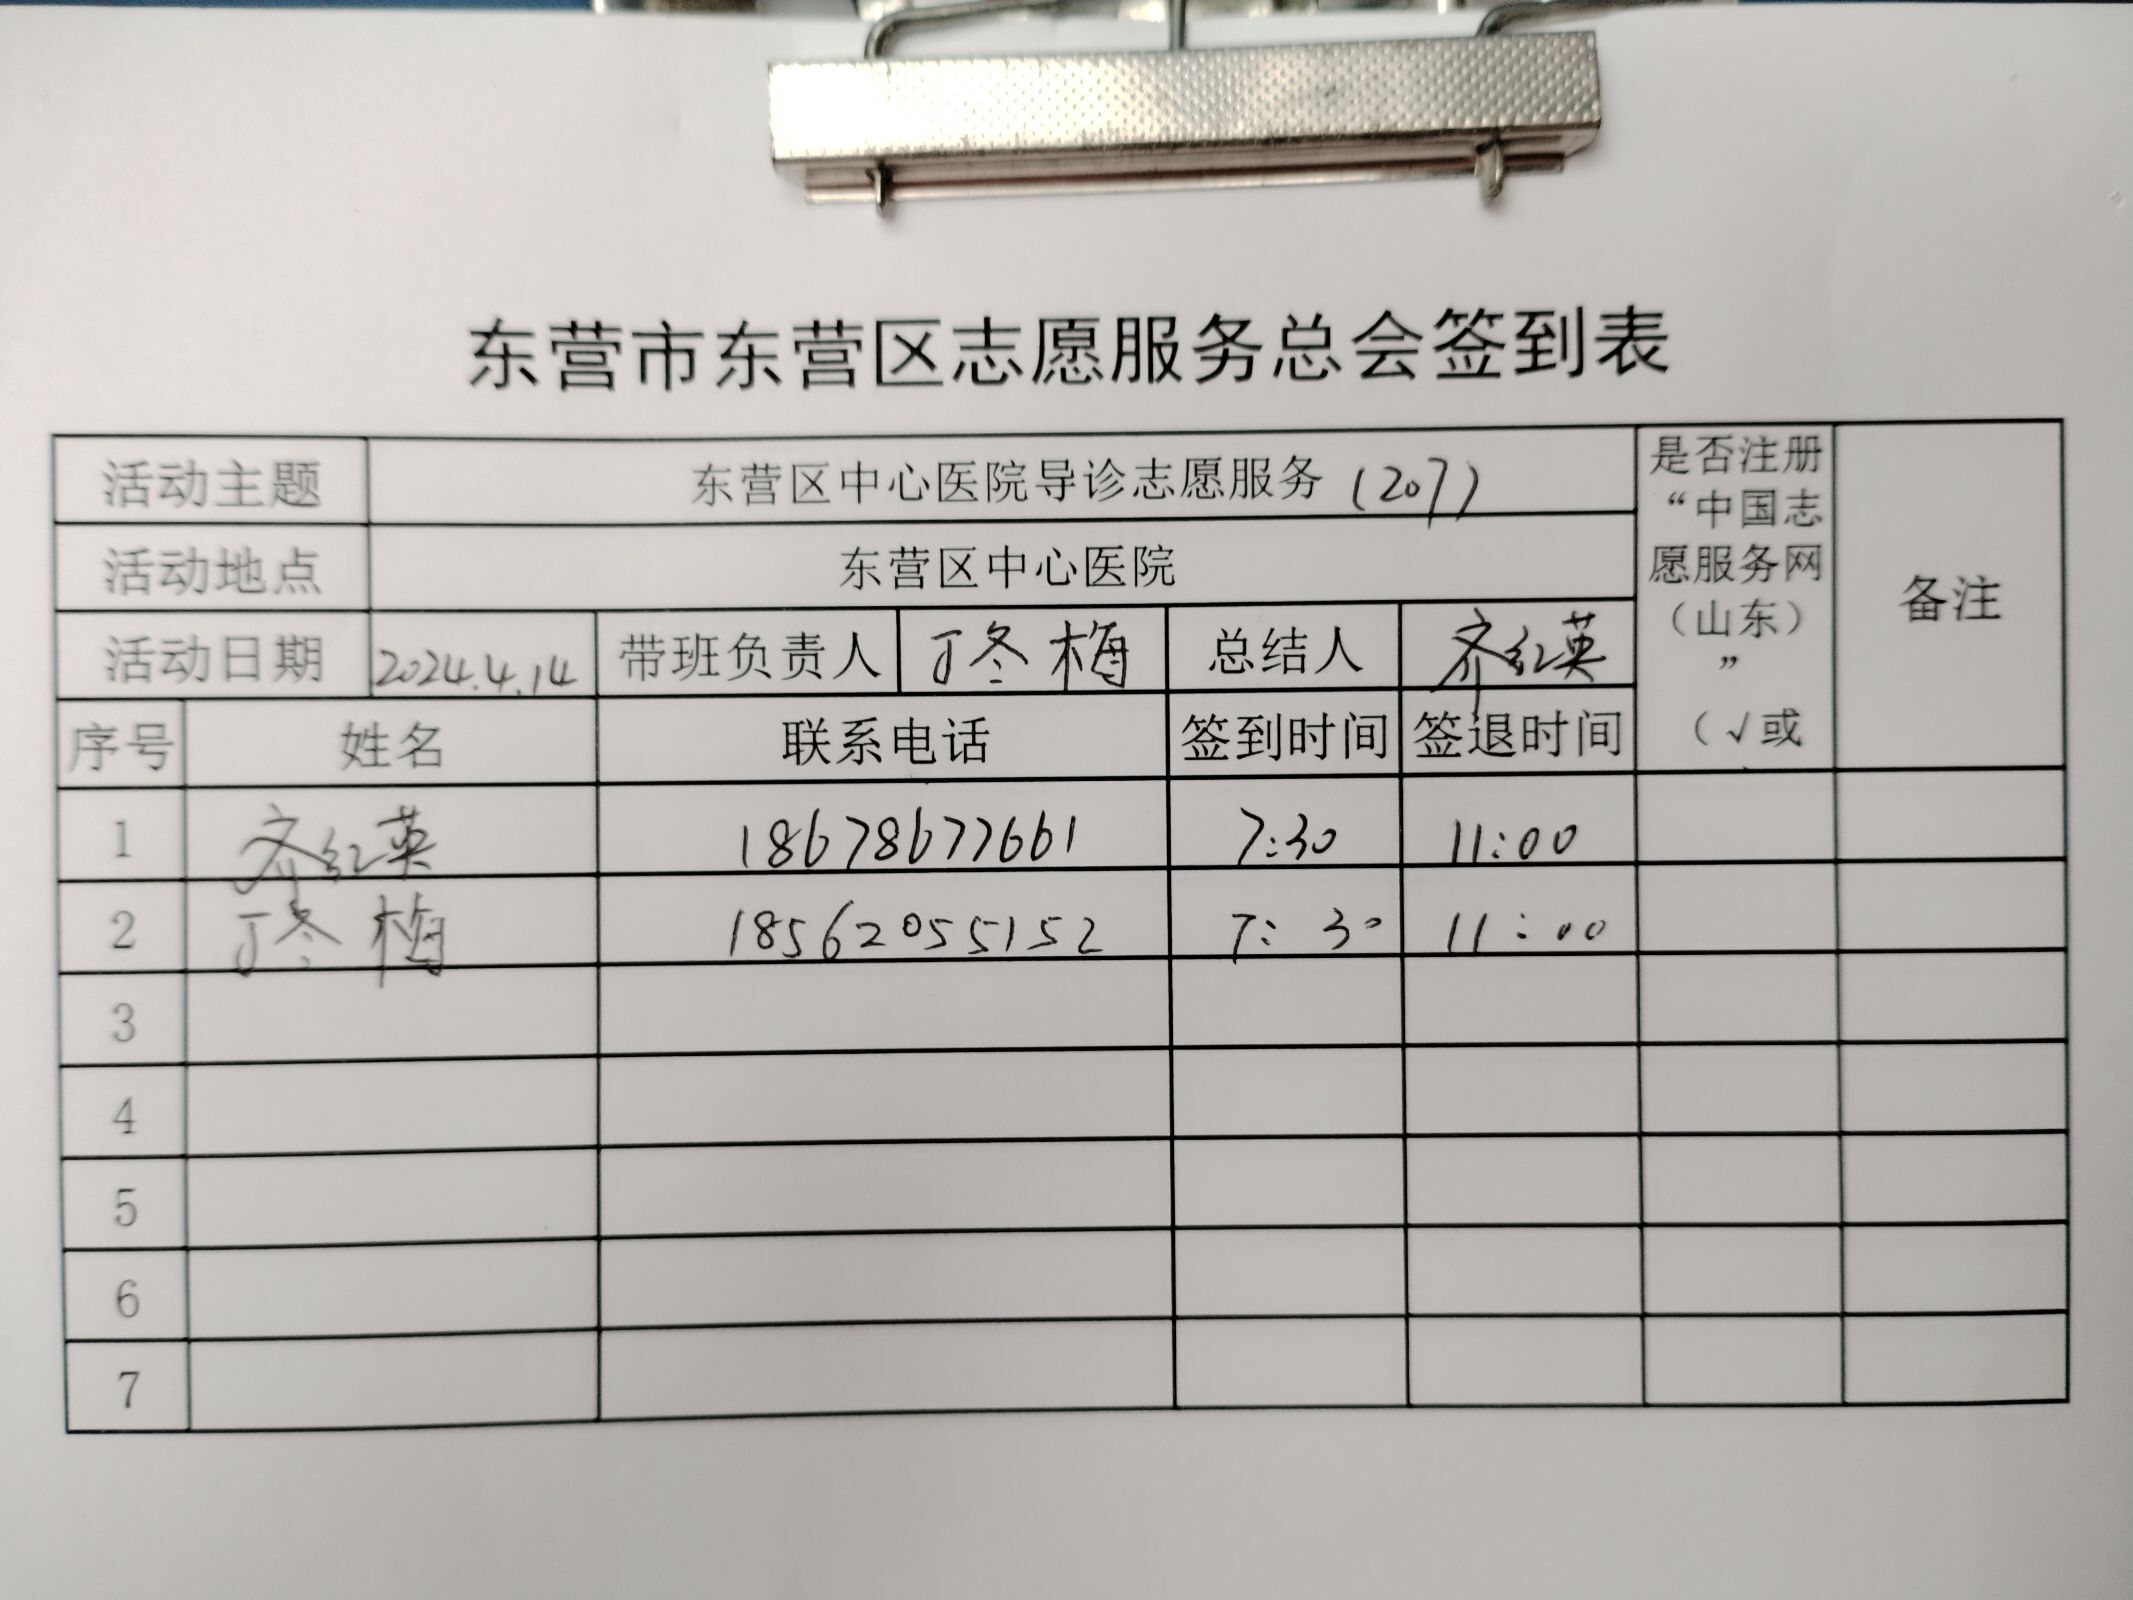 东营市东营区志愿服务总会签到表
活动主题 东营区中心医院导诊志愿服务 (207)
是否注册
“中国志
愿服务网
（山东）
”
（√或
备注
活动地点 东营区中心医院
活动日期 2024.4.14 带班负责人 丁冬梅 总结人 齐红英
序号 姓名 联系电话 签到时间 签退时间
1 齐红英 18678677661 7:30 11:00
2 丁冬梅 18562055152 7:30 11:00
3
4
5
6
7